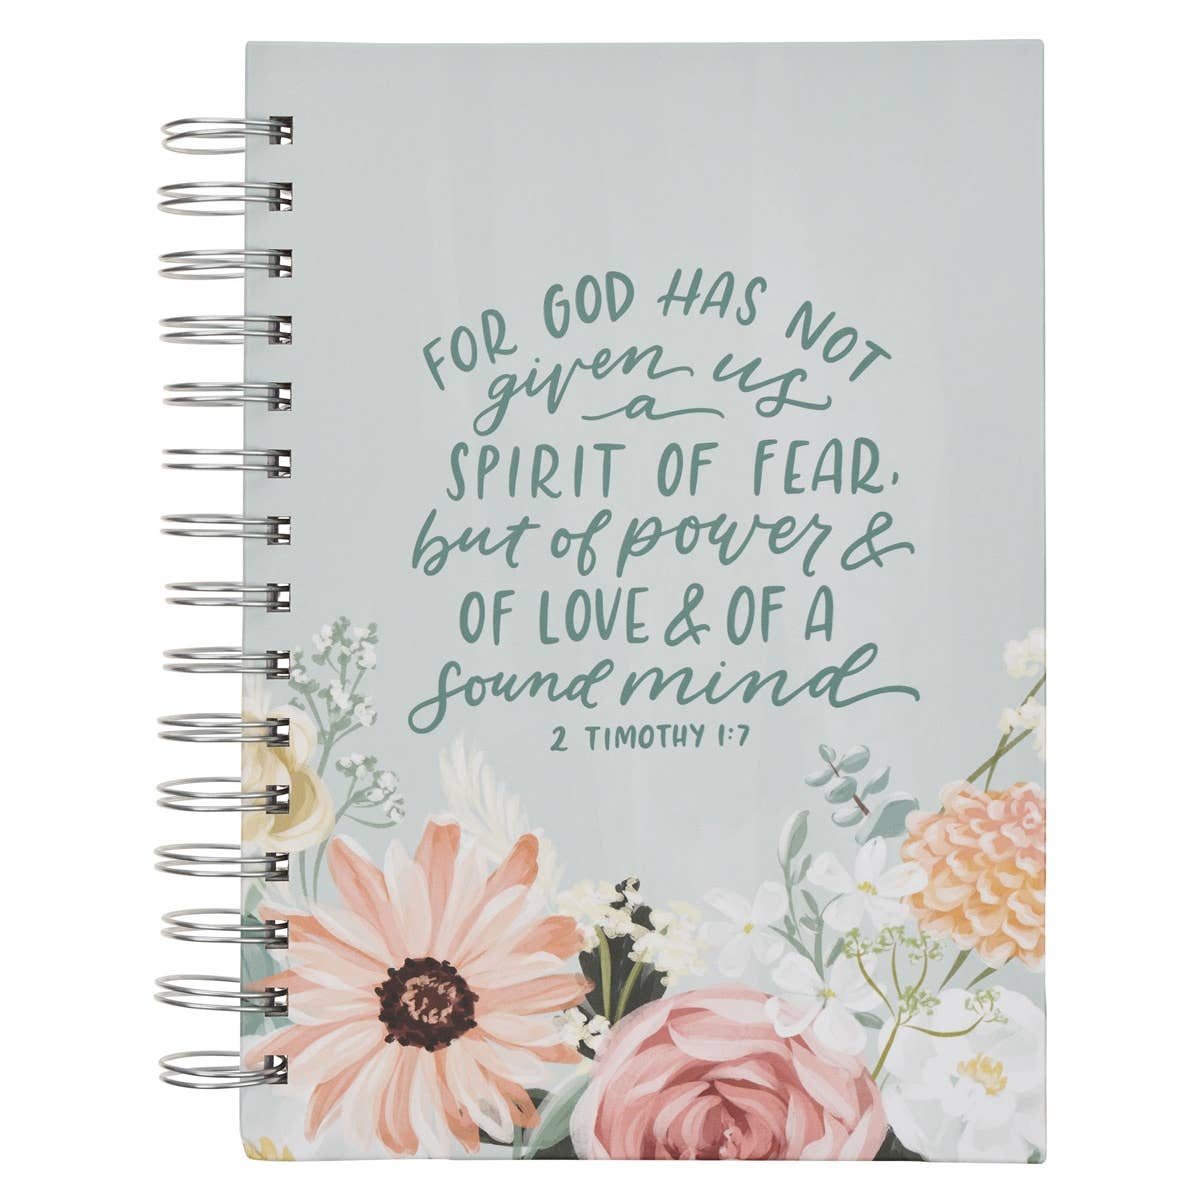 FOR GOD HAS NOT
given us
a
SPIRIT OF FEAR,
but of power &
OF LOVE & OF A
sound mind
2 TIMOTHY 1:7